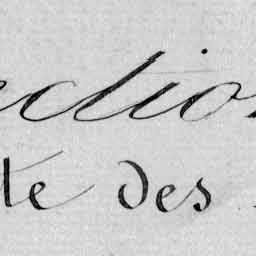 ection
te des